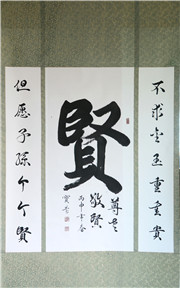 不求金玉重重貴
賢
尊老
敬賢
丙申年春
但愿子孫个个賢